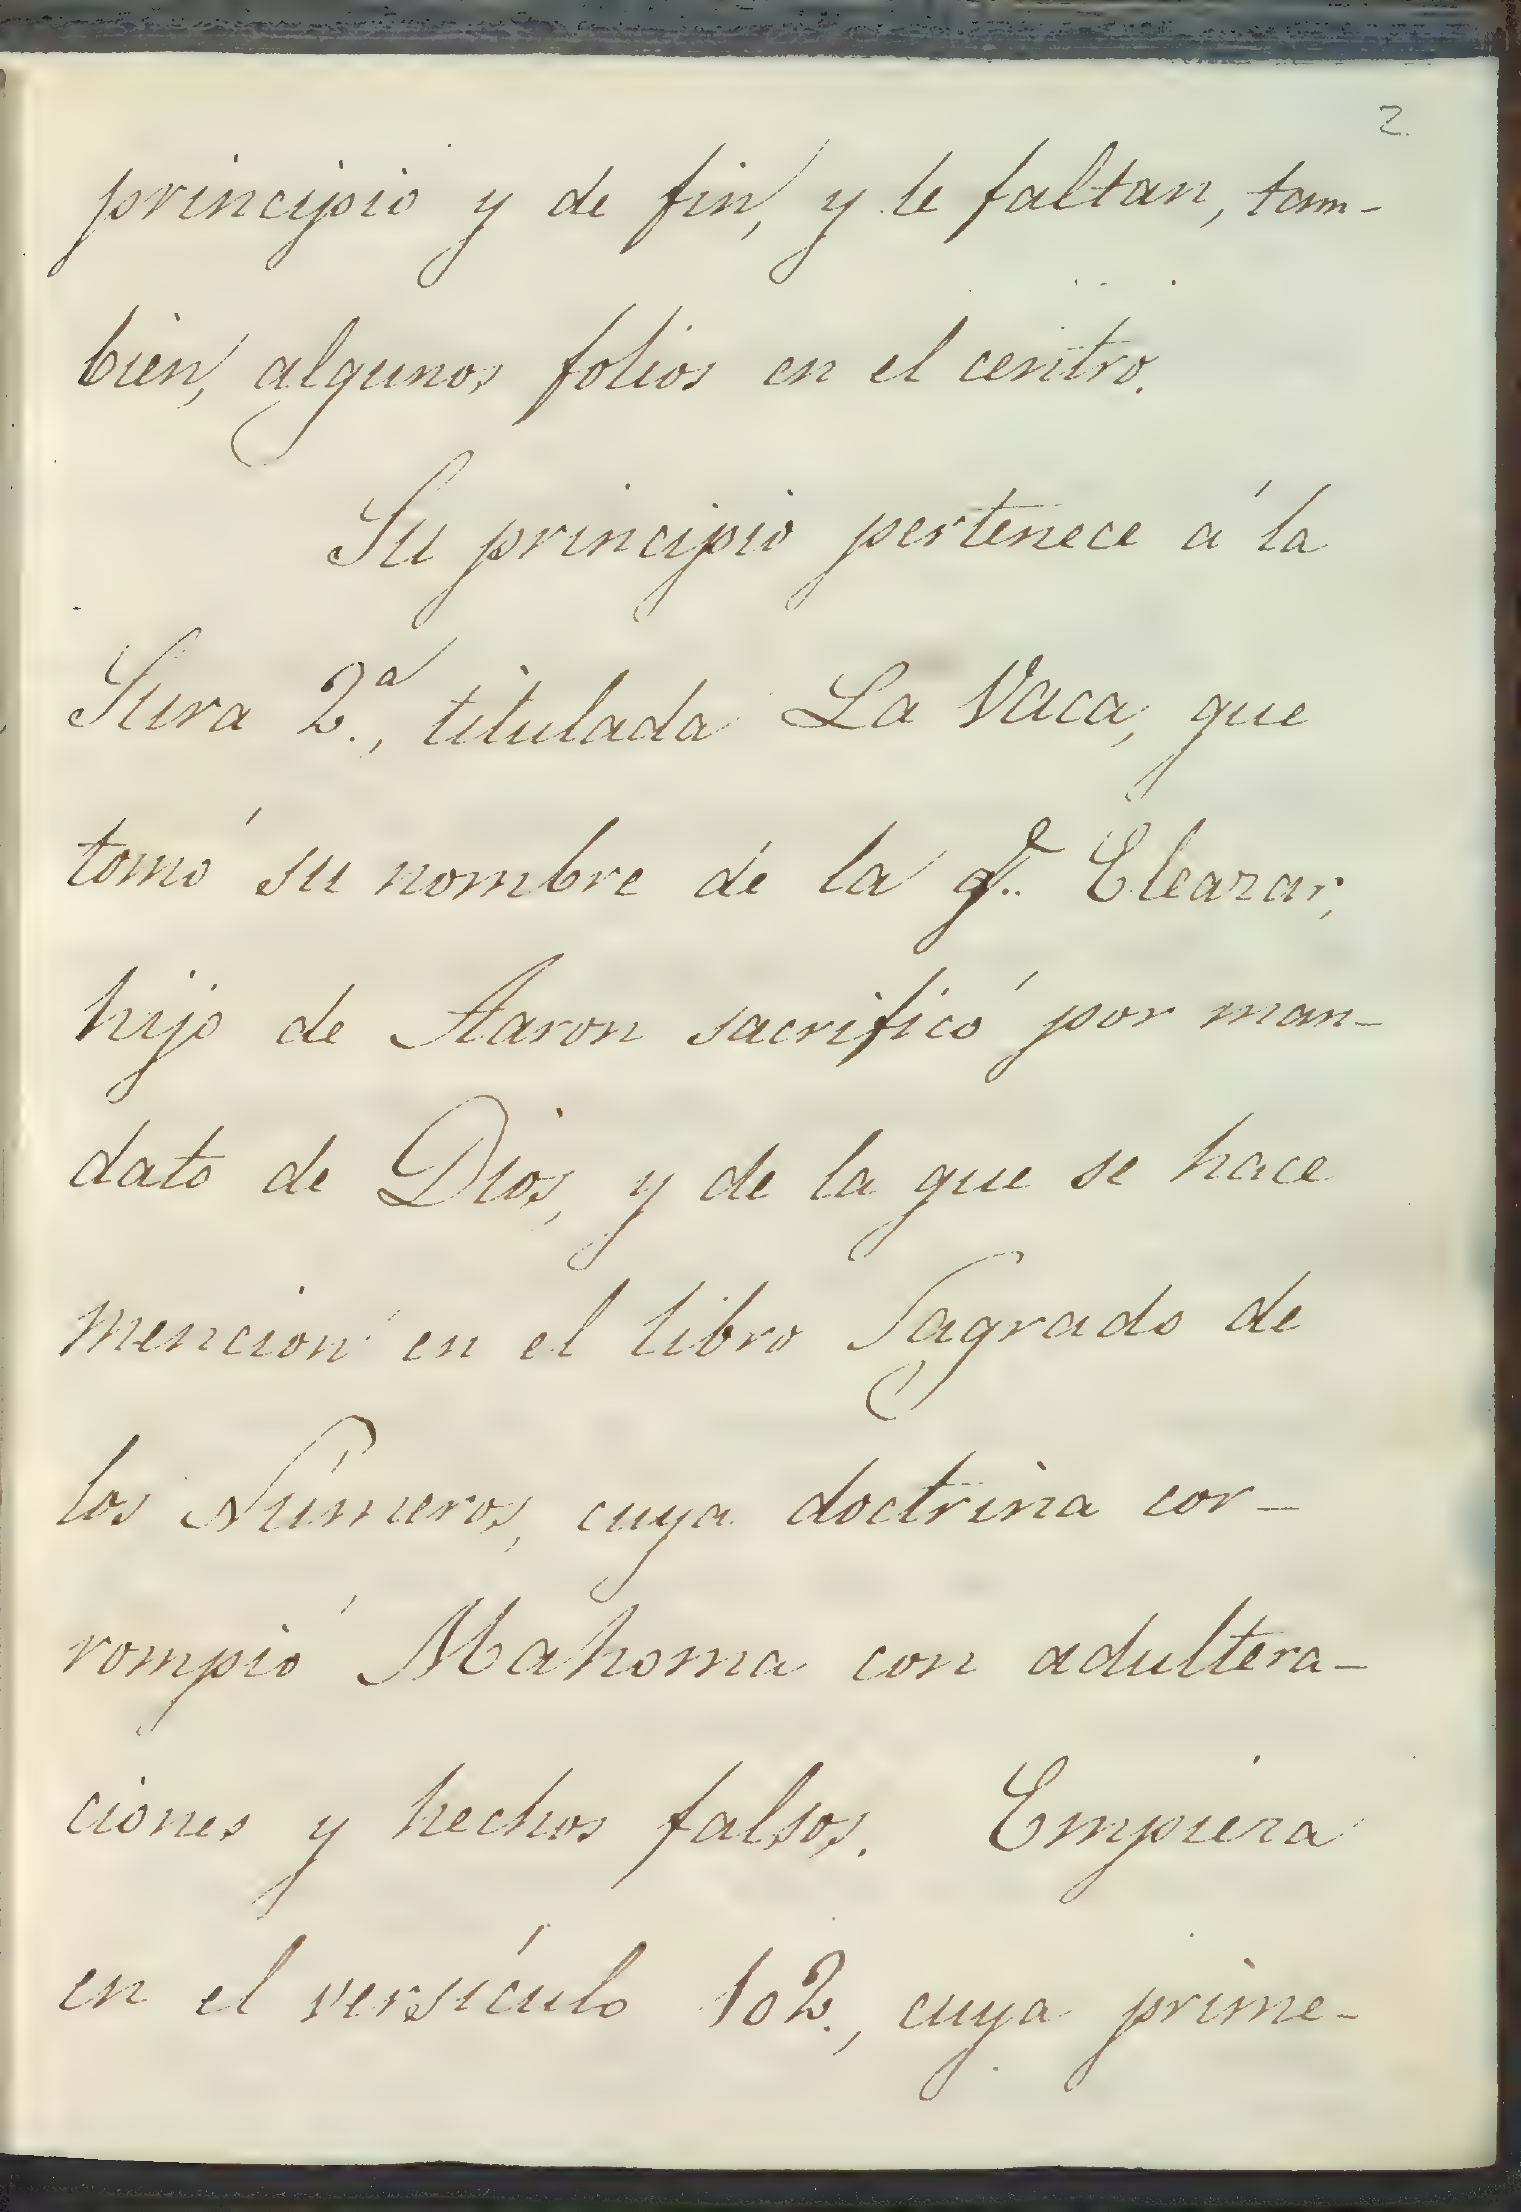 2.
principio y de fin, y le faltan, tam-
bien, algunos folios en el centro.
Su principio pertenece á la
Sura 2.ª, titulada La Vaca, que
tomó su nombre de la q.e Eleazar,
hijo de Aaron sacrificó por man-
dato de Dios, y de la que se hace
mencion en el libro Sagrado de
los Números, cuya doctrina cor-
rompió Mahoma con adultera-
ciones y hechos falsos. Empieza
en el versículo 102., cuya prime-